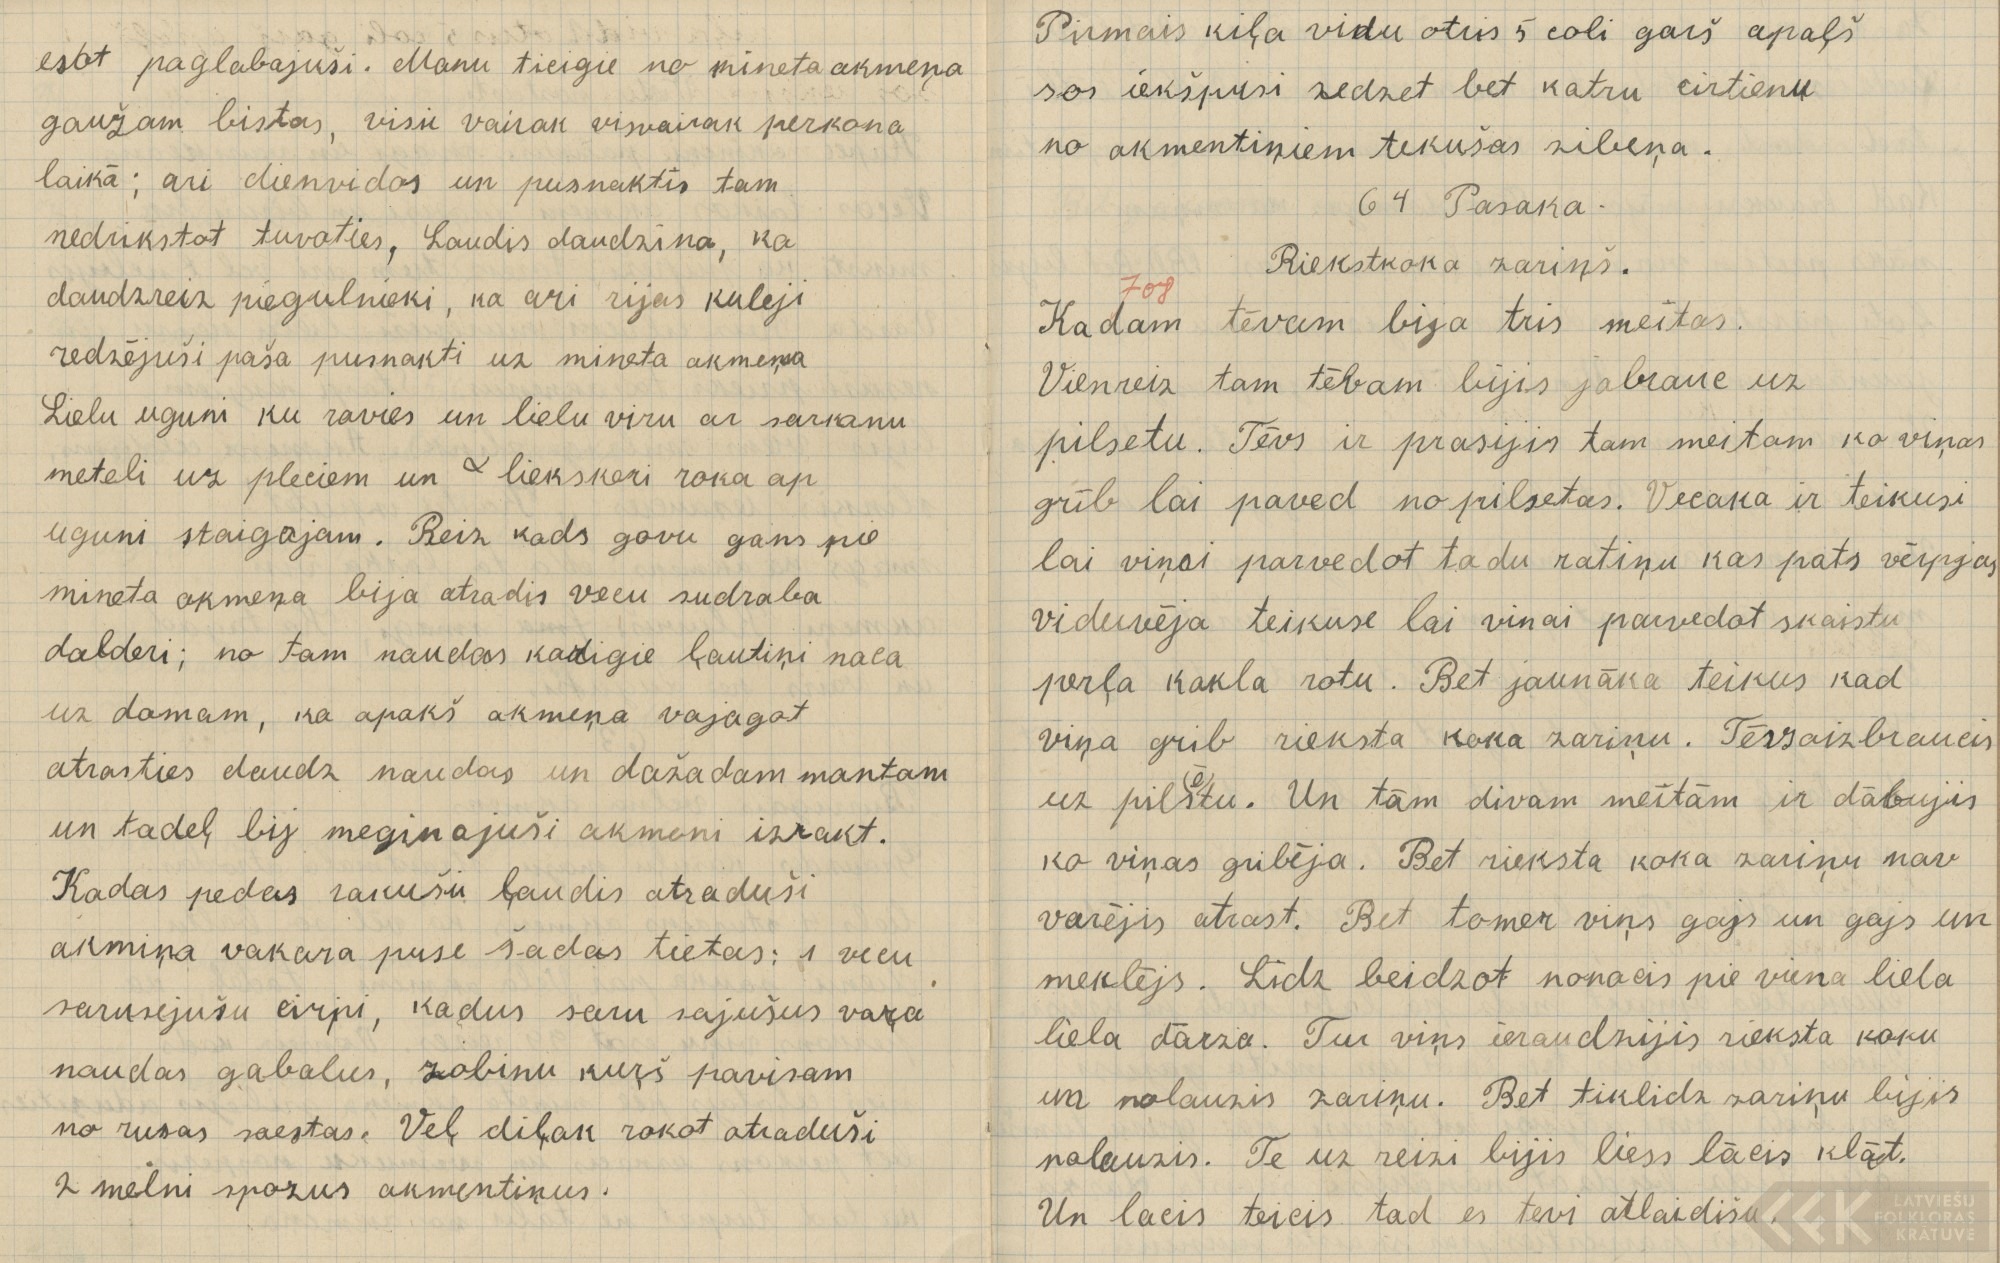 esot paglabajuši. Manu ticigie no mineta akmeņa
gaužam bistas, visu vairak visvairak perkona
laikā; ari dienvidos un pusnaktīs tam
nedrikstot tuvoties, Laudis daudzina, ka
daudzreiz piegulnieki, ka ari rijas kuleji
redzējuši paša pusnakti uz mineta akmeņa
Lielu uguni ku ravies un lielu viru ar sarkanu
meteli uz pleciem un liekskeri roka ap
uguni staigajam. Reiz kads govu gans pie
mineta akmeņa bija atradis vecu sudraba
dalderi; no tam naudas karigie ļautiņi naca
uz domam, ka apakš akmeņa vajagot
atrasties daudz naudas un dažadam mantam
un tadeļ bij meginajuši akmeni izrakt.
Kadas pedas rakuši ļaudis atraduši
akmiņa vakara puse šadas lietas: 1 vecu
sarusejušu cirpi, kadus saru sajušus vaŗa
naudas gabalus, zobinu kuŗš pavisam
no rusas saestas. Veļ diļak rokot atraduši
2 melni spozus akmentiņus.
Pirmais kiļa vidu otris 5 coli garš apaļš
sos iekšpusi zedzet bet katru cirtienu
no akmentiņiem tekušas zibeņa.
64 Pasaka.
Riekstkoka zariņš.
708
Kadam tēvam bija tris meitas.
Vienreiz tam tēvam bijis jabrauc uz
pilsetu. Tēvs ir prasijis tam meitam ko viņas
grib lai paved no pilsetas. Vecaka ir teikusi
lai viņai parvedot tadu ratiņu kas pats vērpjas
viduvēja teikuse lai vinai parvedot skaistu
perļa kakla rotu. Bet jaunāka teikus kad
viņa grib rieksta koka zariņu. Tēvs aizbraucis
uz pilsētu. Un tām divam meitām ir dabujis
ko viņas gribēja. Bet rieksta koka zariņu nav
varējis atrast. Bet tomer viņs gajs un gajs un
meklējs. Lidz beidzot nonacis pie viena liela
liela dārza. Tur viņs ieraudzijis rieksta koku
un nolauzis zariņu. Bet tiklidz zariņu bijis
nolauzis. Te uz reizi bijis liess lācis klāt.
Un lacis teicis tad es tevi atlaidišu,
LATVIEŠU
FOLKLORAS
KRĀTUVE